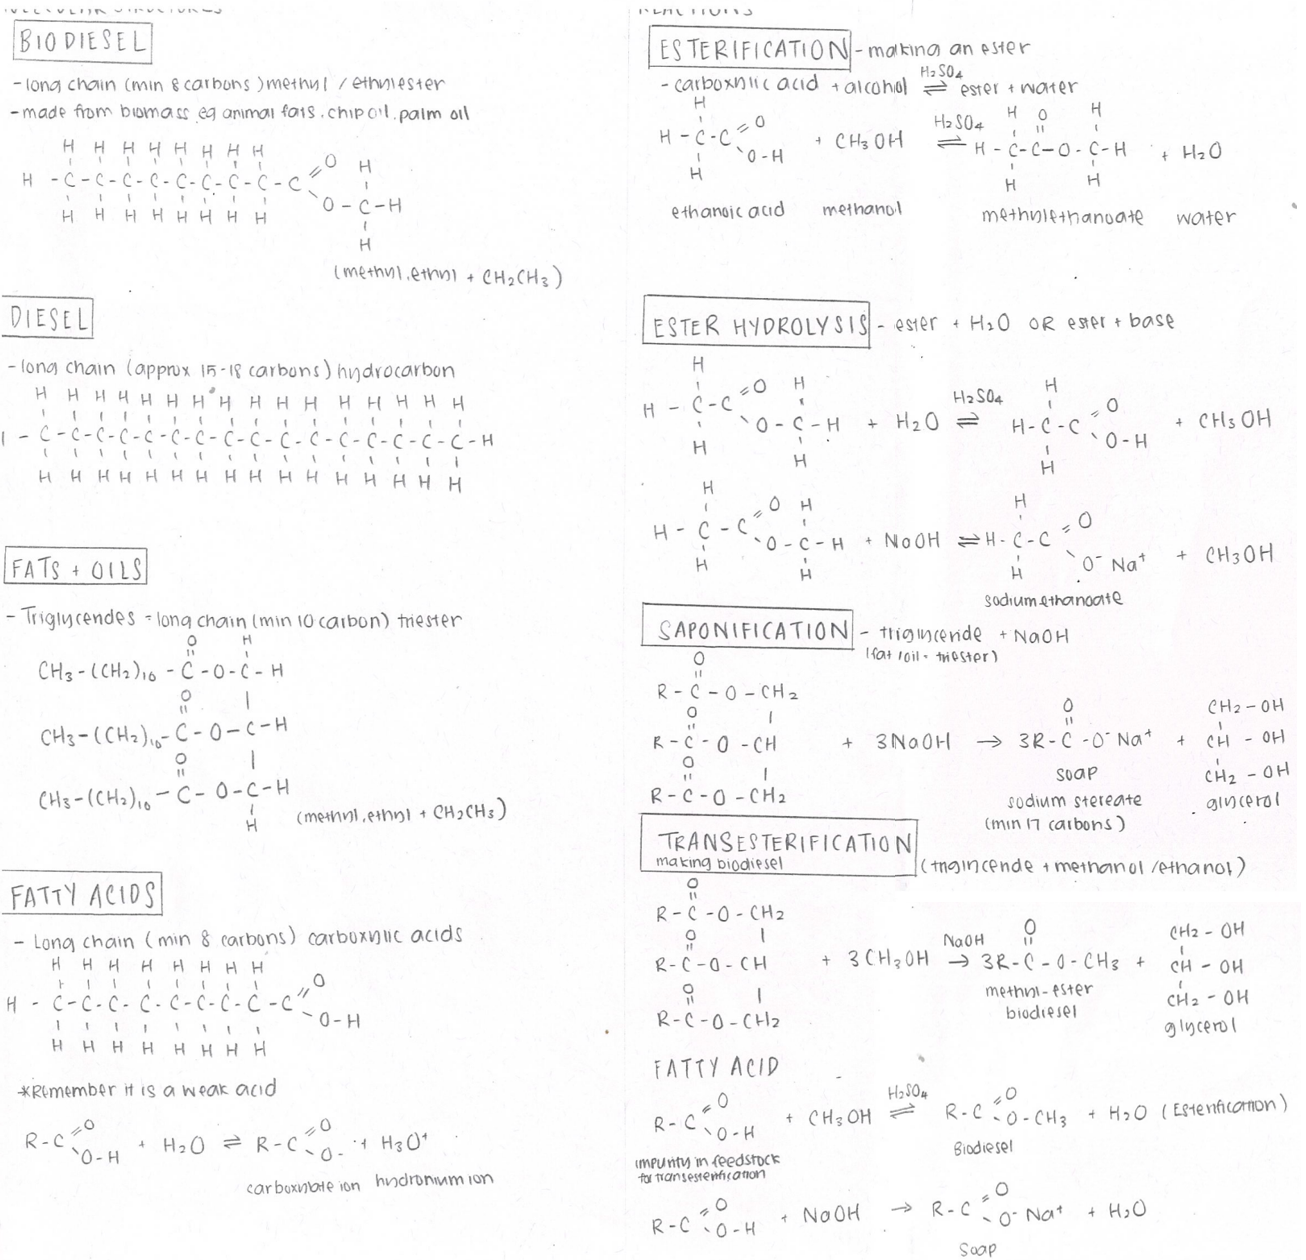 BIODIESEL
-long chain (min 8 carbons) methyl / ethylester
- made from biomass eg animal fats, chip oil, palm oil
H H H H H H H H
H - C - C - C - C - C - C - C - C - C = O H
H H H H H H H H O - C - H
H
(methyl, ethyl + CH2CH3)
DIESEL
- long chain (approx 15-18 carbons) hydrocarbon
H H H H H H H H H H H H H H H H
- C - C - C - C - C - C - C - C - C - C - C - C - C - C - C - C - H
H H H H H H H H H H H H H H H H
FATS + OILS
- Triglycerides = long chain (min 10 carbon) triester
O H
CH3 - (CH2)10 - C - O - C - H
O
CH3 - (CH2)10 - C - O - C - H
O
CH3 - (CH2)10 - C - O - C - H
H
(methyl, ethyl + CH2CH3)
FATTY ACIDS
- Long chain (min 8 carbons) carboxylic acids
H H H H H H H H
H - C - C - C - C - C - C - C - C - C = O
H H H H H H H H O - H
*Remember it is a weak acid
R - C = O O - H + H2O ⇌ R - C = O O- + H3O+
carboxylate ion hydronium ion
REACTIONS
ESTERIFICATION - making an ester
- carboxylic acid + alcohol ⇌ H2SO4 ester + water
H H O H
H - C - C = O O - H + CH3OH ⇌ H2SO4 H - C - C - O - C - H + H2O
H H H
ethanoic acid methanol methylethanoate water
ESTER HYDROLYSIS - ester + H2O OR ester + base
H H H
H - C - C = O O - C - H + H2O ⇌ H2SO4 H - C - C = O O - H + CH3OH
H H H
H H H
H - C - C = O O - C - H + NaOH ⇌ H - C - C = O O- Na+ + CH3OH
H H H
sodium ethanoate
SAPONIFICATION - triglyceride + NaOH
(fat / oil = triester)
O
R - C - O - CH2
O O CH2 - OH
R - C - O - CH + 3NaOH → 3R - C - O- Na+ + CH - OH
O soap CH2 - OH
R - C - O - CH2 sodium stereate glycerol
(min 17 carbons)
TRANSESTERIFICATION
making biodiesel (triglyceride + methanol / ethanol)
O
R - C - O - CH2
O O CH2 - OH
R - C - O - CH + 3CH3OH NaOH → 3R - C - O - CH3 + CH - OH
O methyl-ester CH2 - OH
R - C - O - CH2 biodiesel glycerol
FATTY ACID
R - C = O O - H + CH3OH ⇌ H2SO4 R - C = O O - CH3 + H2O (Esterification)
impurity in feedstock Biodiesel
for transesterification
R - C = O O - H + NaOH → R - C = O O- Na+ + H2O
Soap